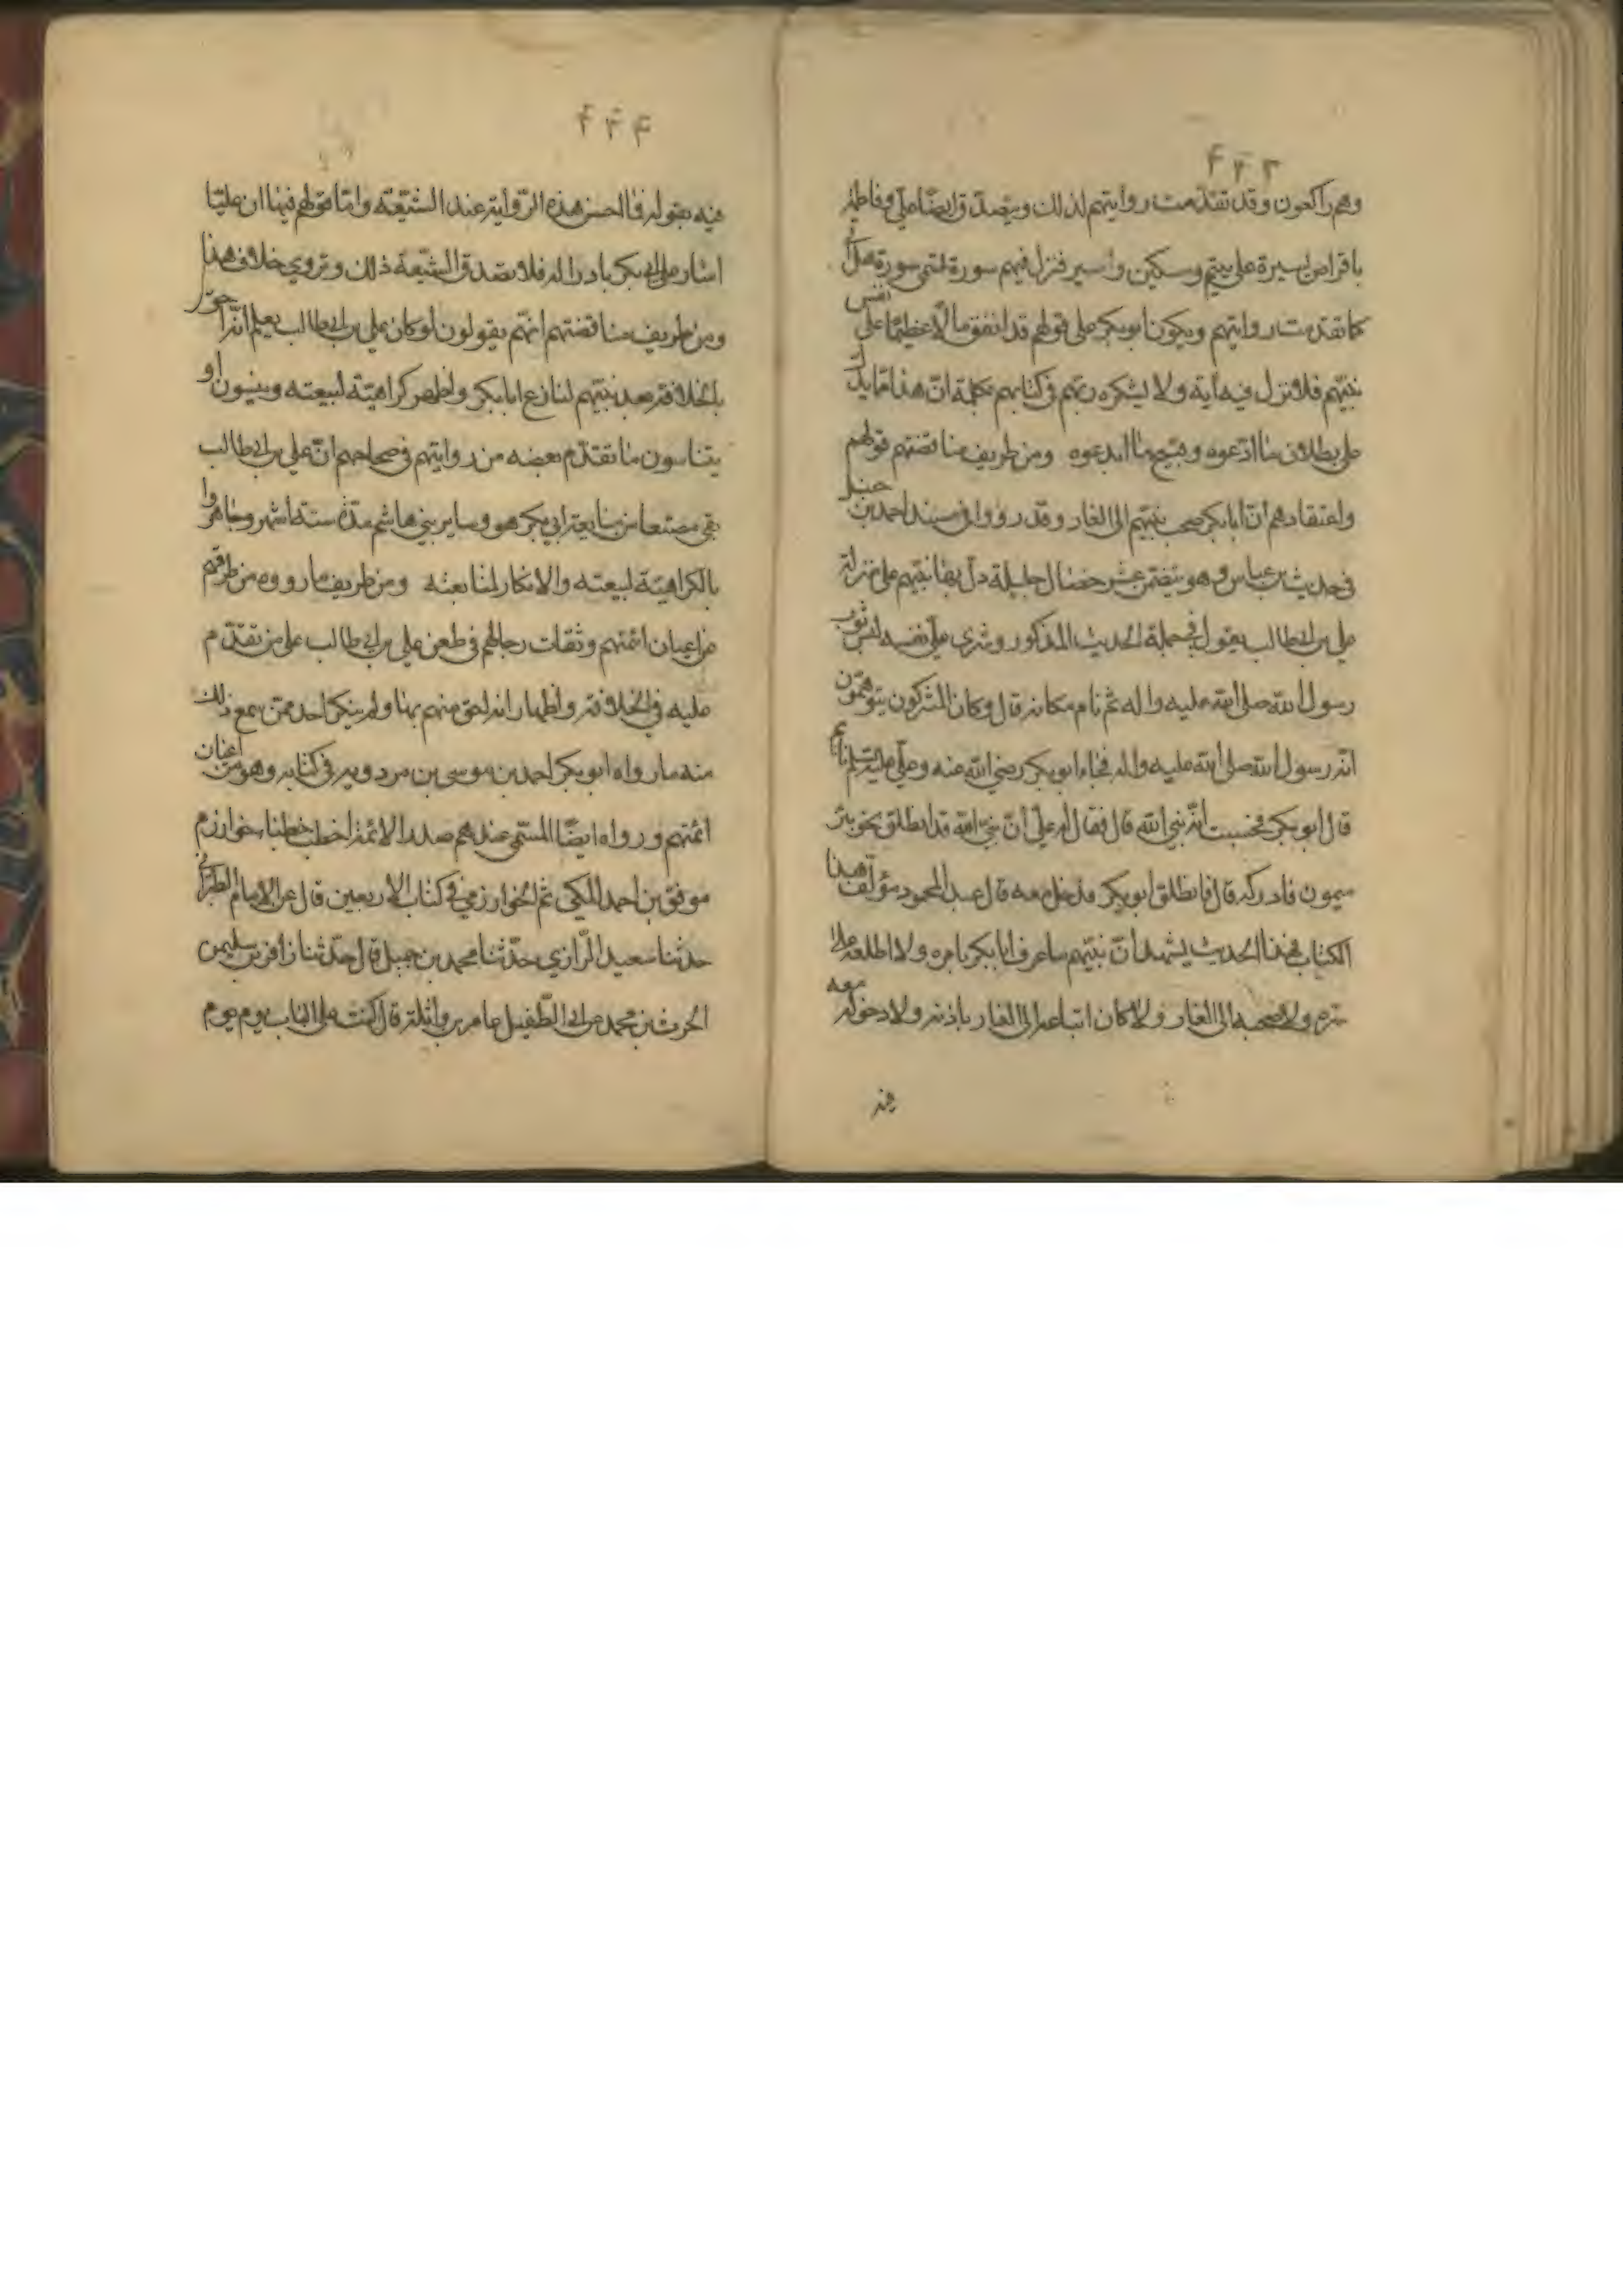 ۴۳۳
وهم راكعون وقد تقدمت روايتهم لذلك ويتصدق ايضا علي وفاطمة
باقراص يسيرة على يتيم ومسكين واسير فنزل فيهم سورة تسمى سورة هل اتى
كما تقدمت روايتهم ويكون ابو بكر على قولهم قد انفق مالا عظيما على نفس
نبيهم فلا تنزل فيه آية ولا يشكره ربهم في كتابهم بكلمة ان هذا مما يدل
على بطلان ما ادعوه وقبيح ما ابدعوه ومن طريف مناقضتهم قولهم
واعتقادهم ان ابا بكر صحب نبيهم الى الغار وقد رووا في مسند احمد بن حنبل
في حديث بن عباس وهو يتضمن عشر خصال جليلة دل بها نبيهم على منزلة
علي بن ابي طالب يقول في جملة الحديث المذكور وشرى علي نفسه لبس ثوب
رسول الله صلى الله عليه واله ثم نام مكانه قال وكان المشركون يتوهمون
انه رسول الله صلى الله عليه واله فجاء ابو بكر رضي الله عنه وعلي عليه السلم نائم
قال ابو بكر فحسبت انه نبي الله قال فقال له علي ان نبي الله قد انطلق نحو بئر
ميمون فادركه قال فانطلق ابو بكر فدخل معه قال عبد المحمود مؤلف هذا
الكتاب فهذا الحديث يشهد ان نبيهم ما عرف ابا بكر بامره ولا اطلعه على
سره ولا صحبه الى الغار ولا كان اتباعه الى الغار باذنه ولا دخوله معه
فيه
۴۳۴
فيه بقوله فما احسن هذه الرواية عند الشيعة واما قولهم فيها ان عليا
اشار على ابي بكر بادراكه فلا تصدق الشيعة ذلك وتروي خلاف هذا
ومن طريف مناقضتهم انهم يقولون لو كان علي بن ابي طالب يعلم انه احق
بالخلافة بعد نبيهم لنازع ابا بكر ولظهر كراهية لبيعته وينسون او
يتناسون ما تقدم بعضه من روايتهم في صحاحهم ان علي بن ابي طالب
بقي ممتنعا من مبايعة ابي بكر هو وساير بني هاشم مدة ستة اشهر وجاهروا
بالكراهية لبيعته والانكار لمتابعته ومن طريف ما رووه من طرقهم
من اعيان ائمتهم وثقات رجالهم في طعن علي بن ابي طالب على من تقدم
عليه في الخلافة واظهار انه احق منهم بها ولم ينكر احد ممن سمع ذلك
منه ما رواه ابو بكر احمد بن موسى بن مردويه في كتابه وهو من اعيان
ائمتهم ورواه ايضا المسمى عندهم صدر الائمة اخطب خطباء خوارزم
موفق بن احمد المكي ثم الخوارزمي في كتاب الاربعين قال عن الامام الطبراني
حدثنا سعيد الرازي حدثنا محمد بن حميد قال حدثنا زافر بن سليمن
الحرث بن محمد عن ابي الطفيل عامر بن واثلة قال كنت على الباب يوم